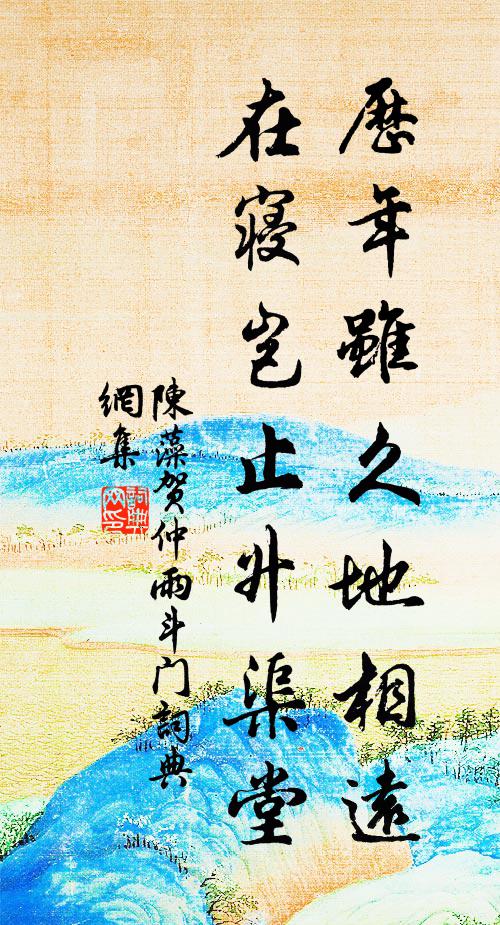 歷年雖久地相遠
在寢豈止升渠堂
陳藻賀仲兩斗门詞典
網集
詞典網印